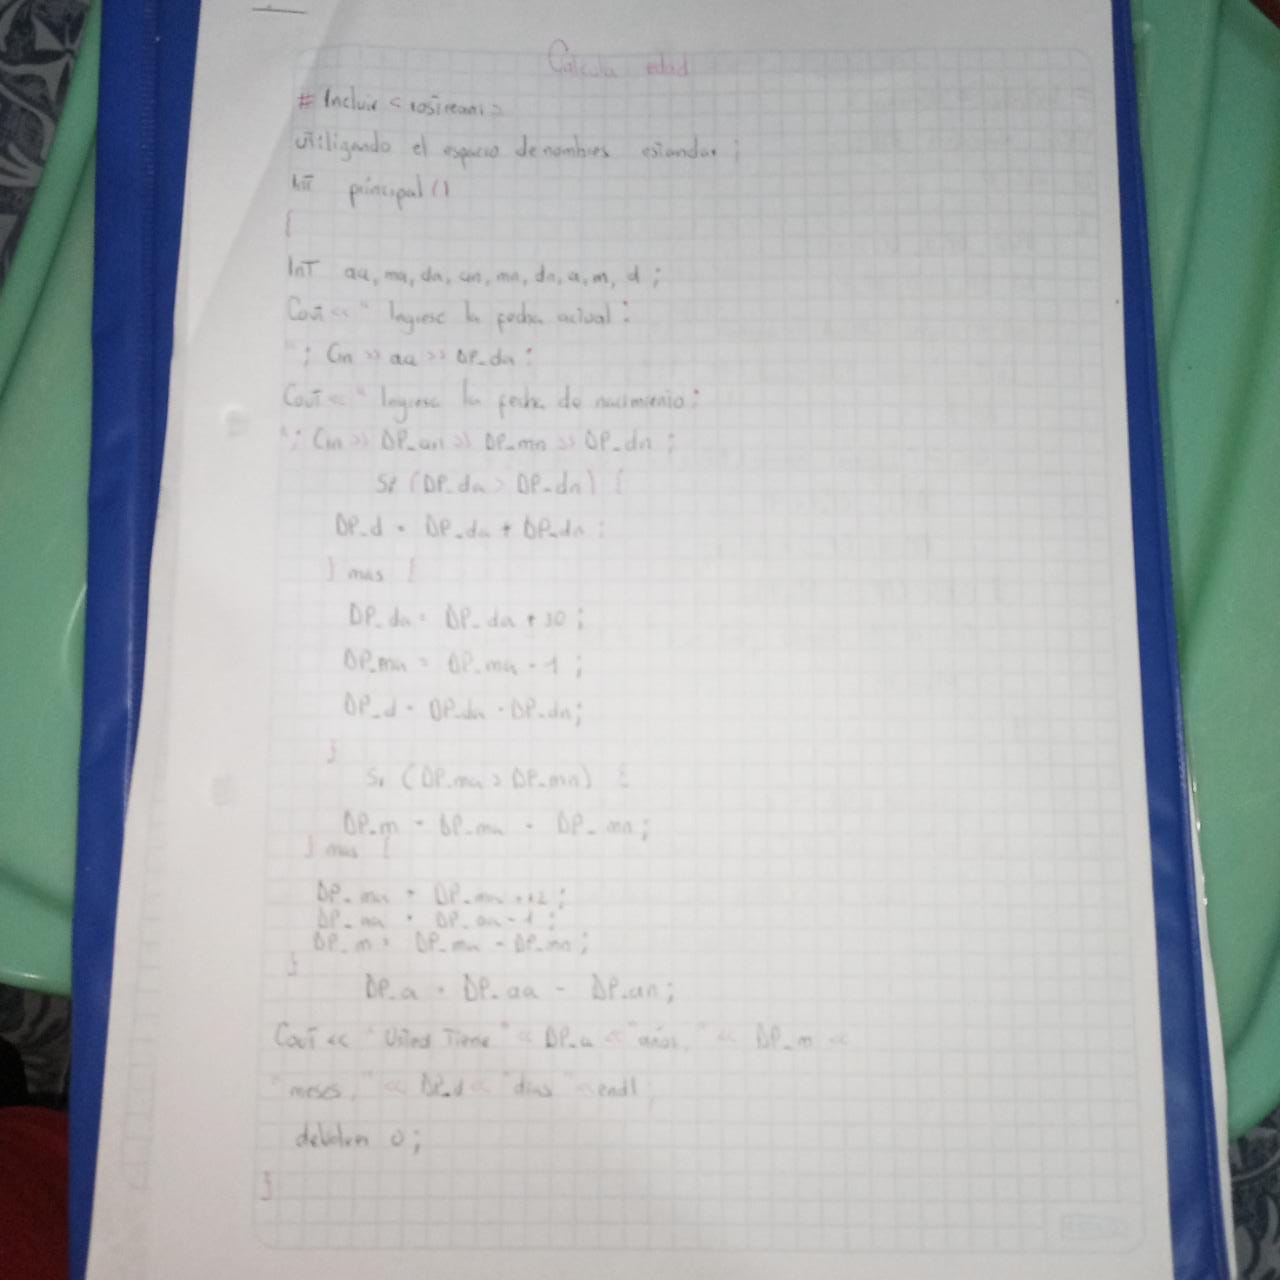 Calcula edad
# Incluir < iostream >
utiligando el espacio de nombres estandar ;
Int principal ()
{
Int aa, ma, da, an, mn, dn, a, m, d ;
Cout << " Ingrese la fecha actual :
" ; Cin >> aa >> DP_da :
Cout << " Ingrese la fecha de nacimiento :
" ; Cin >> DP_an >> DP_mn >> DP_dn ;
Si (DP_da > DP_dn) {
DP_d = DP_da + DP_dn ;
} mas {
DP_da = DP_da + 30 ;
DP_ma = DP_ma - 1 ;
DP_d = DP_da - DP_dn ;
}
Si (DP_ma > DP_mn) {
DP_m = DP_ma - DP_mn ;
} mas {
DP_ma = DP_ma +12 ;
DP_aa = DP_aa - 1 ;
DP_m = DP_ma - DP_mn ;
}
DP_a = DP_aa - DP_an ;
Cout << " Usted Tiene " << DP_a << "años, " << DP_m <<
"meses, " << DP_d << "dias " << endl
debolver 0 ;
}